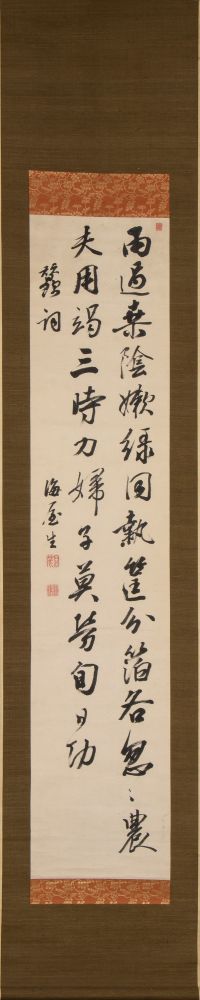 雨過桑陰嫩綠同執筐分箔各怱〻農
夫用竭三時力婦子莫勞旬日功
蠶詞
海屋生